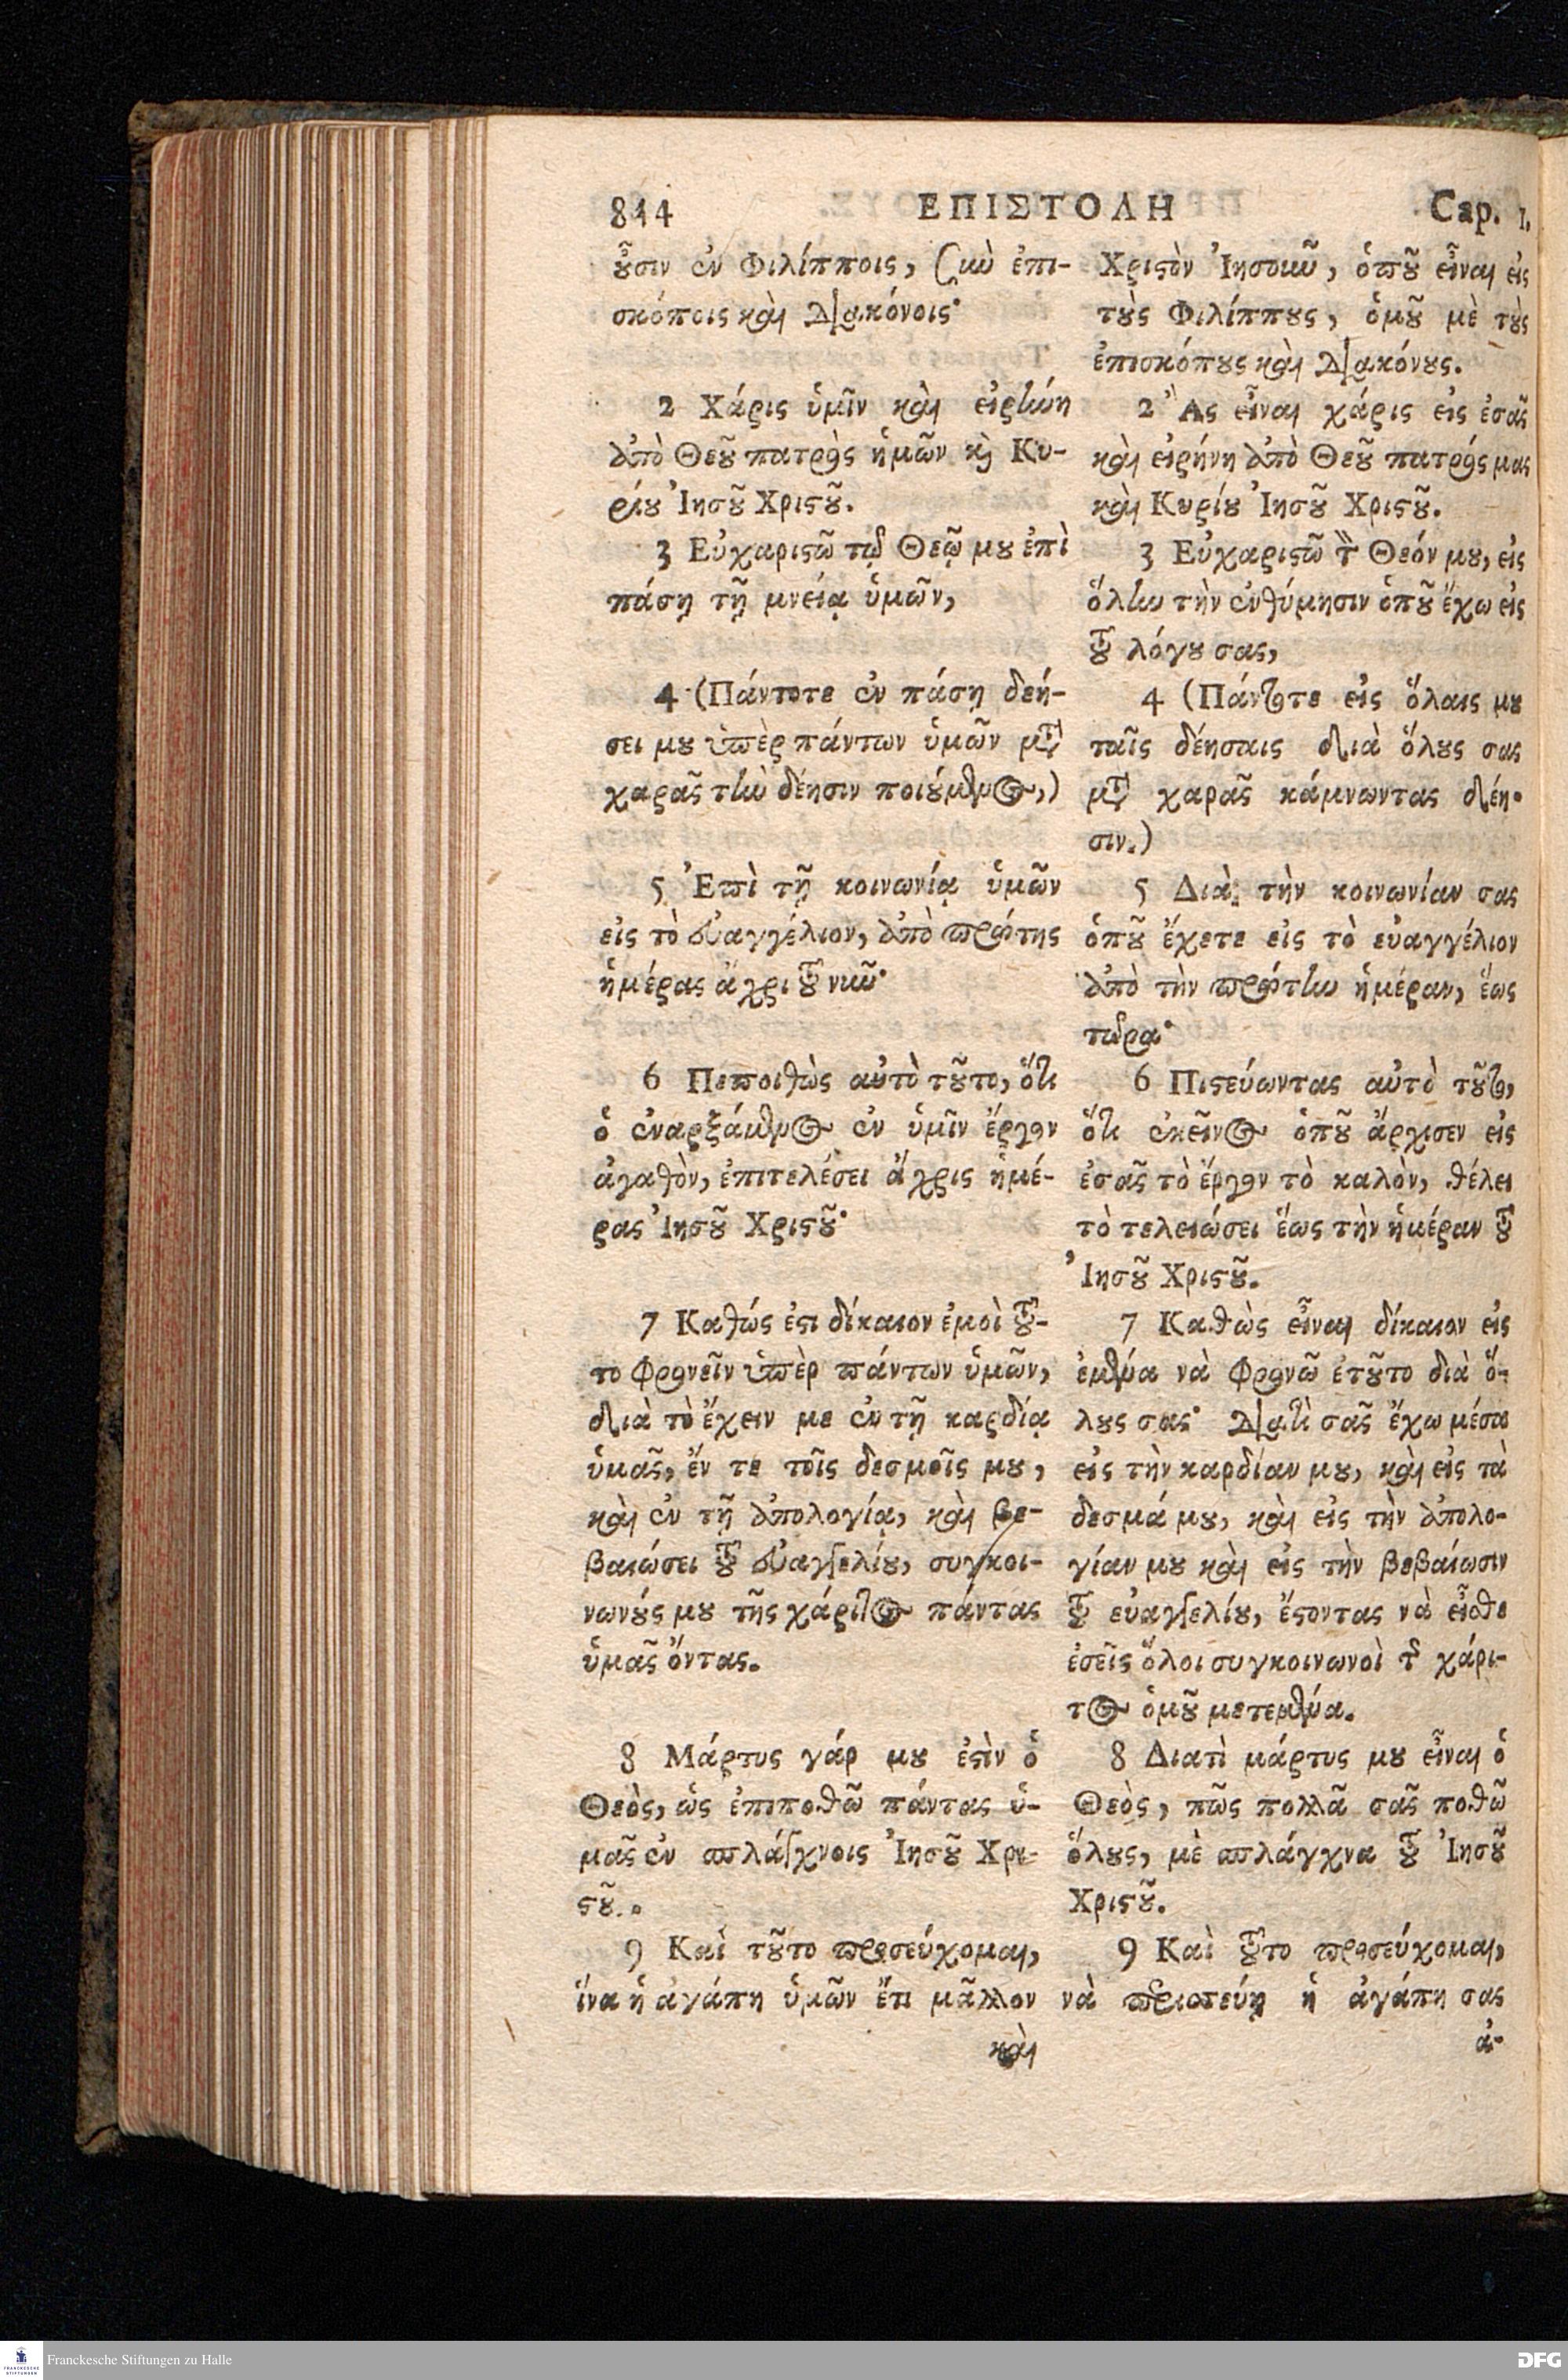 814
ΕΠΙΣΤΟΛΗ
Cap. 1.
οὖσιν ἐν Φιλίπποις, σὺν ἐπι-
σκόποις καὶ Διακόνοις·
2 Χάρις ὑμῖν καὶ εἰρήνη
ἀπὸ Θεοῦ πατρὸς ἡμῶν καὶ Κυ-
ρίου Ἰησοῦ Χριστοῦ.
3 Εὐχαριστῶ τῷ Θεῷ μου ἐπὶ
πάσῃ τῇ μνείᾳ ὑμῶν,
4 (Πάντοτε ἐν πάσῃ δεή-
σει μου ὑπὲρ πάντων ὑμῶν μετὰ
χαρᾶς τὴν δέησιν ποιούμενος,)
5 Ἐπὶ τῇ κοινωνίᾳ ὑμῶν
εἰς τὸ εὐαγγέλιον, ἀπὸ πρώτης
ἡμέρας ἄχρι τοῦ νῦν·
6 Πεποιθὼς αὐτὸ τοῦτο, ὅτι
ὁ ἐναρξάμενος ἐν ὑμῖν ἔργον
ἀγαθὸν, ἐπιτελέσει ἄχρις ἡμέ-
ρας Ἰησοῦ Χριστοῦ·
7 Καθώς ἐστι δίκαιον ἐμοὶ τοῦ-
το φρονεῖν ὑπὲρ πάντων ὑμῶν,
διὰ τὸ ἔχειν με ἐν τῇ καρδίᾳ
ὑμᾶς, ἔν τε τοῖς δεσμοῖς μου,
καὶ ἐν τῇ ἀπολογίᾳ, καὶ βε-
βαιώσει τοῦ εὐαγγελίου, συγκοι-
νωνούς μου τῆς χάριτος πάντας
ὑμᾶς ὄντας.
8 Μάρτυς γάρ μου ἐστὶν ὁ
Θεὸς, ὡς ἐπιποθῶ πάντας ὑ-
μᾶς ἐν σπλάγχνοις Ἰησοῦ Χρι-
στοῦ.
9 Καὶ τοῦτο προσεύχομαι,
ἵνα ἡ ἀγάπη ὑμῶν ἔτι μᾶλλον
καὶ
Χριστὸν Ἰησοῦν, ὁποῦ εἶναι εἰς
τοὺς Φιλίππους, ὁμοῦ μὲ τοὺς
ἐπισκόπους καὶ Διακόνους.
2 Ἂς εἶναι χάρις εἰς ἐσᾶς
καὶ εἰρήνη ἀπὸ Θεοῦ πατρός μας
καὶ Κυρίου Ἰησοῦ Χριστοῦ.
3 Εὐχαριστῶ τὸν Θεόν μου, εἰς
ὅλην τὴν ἐνθύμησιν ὁποῦ ἔχω εἰς
τοῦ λόγου σας,
4 (Πάντοτε εἰς ὅλαις μου
ταῖς δέησαις διὰ ὅλους σας
μετὰ χαρᾶς κάμνωντας δέη-
σιν.)
5 Διὰ τὴν κοινωνίαν σας
ὁποῦ ἔχετε εἰς τὸ εὐαγγέλιον
ἀπὸ τὴν πρώτην ἡμέραν, ἕως
τώρα·
6 Πιστεύωντας αὐτὸ τοῦτο,
ὅτι ἐκεῖνος ὁποῦ ἄρχισεν εἰς
ἐσᾶς τὸ ἔργον τὸ καλὸν, θέλει
τὸ τελειώσει ἕως τὴν ἡμέραν τοῦ
Ἰησοῦ Χριστοῦ.
7 Καθὼς εἶναι δίκαιον εἰς
ἐμένα νὰ φρονῶ ἐτοῦτο διὰ ὅ-
λους σας· Διατὶ σᾶς ἔχω μέσα
εἰς τὴν καρδίαν μου, καὶ εἰς τὰ
δεσμά μου, καὶ εἰς τὴν ἀπολο-
γίαν μου καὶ εἰς τὴν βεβαίωσιν
τοῦ εὐαγγελίου, ἔστοντας νὰ εἶσθε
ἐσεῖς ὅλοι συγκοινωνοὶ τῆς χάρι-
τος ὁμοῦ μετεμένα.
8 Διατὶ μάρτυς μου εἶναι ὁ
Θεὸς, πῶς πολλᾶ σᾶς ποθῶ
ὅλους, μὲ σπλάγχνα τοῦ Ἰησοῦ
Χριστοῦ.
9 Καὶ τοῦτο προσεύχομαι,
νὰ περισσεύῃ ἡ ἀγάπη σας
ἀ-
Franckesche Stiftungen zu Halle
DFG